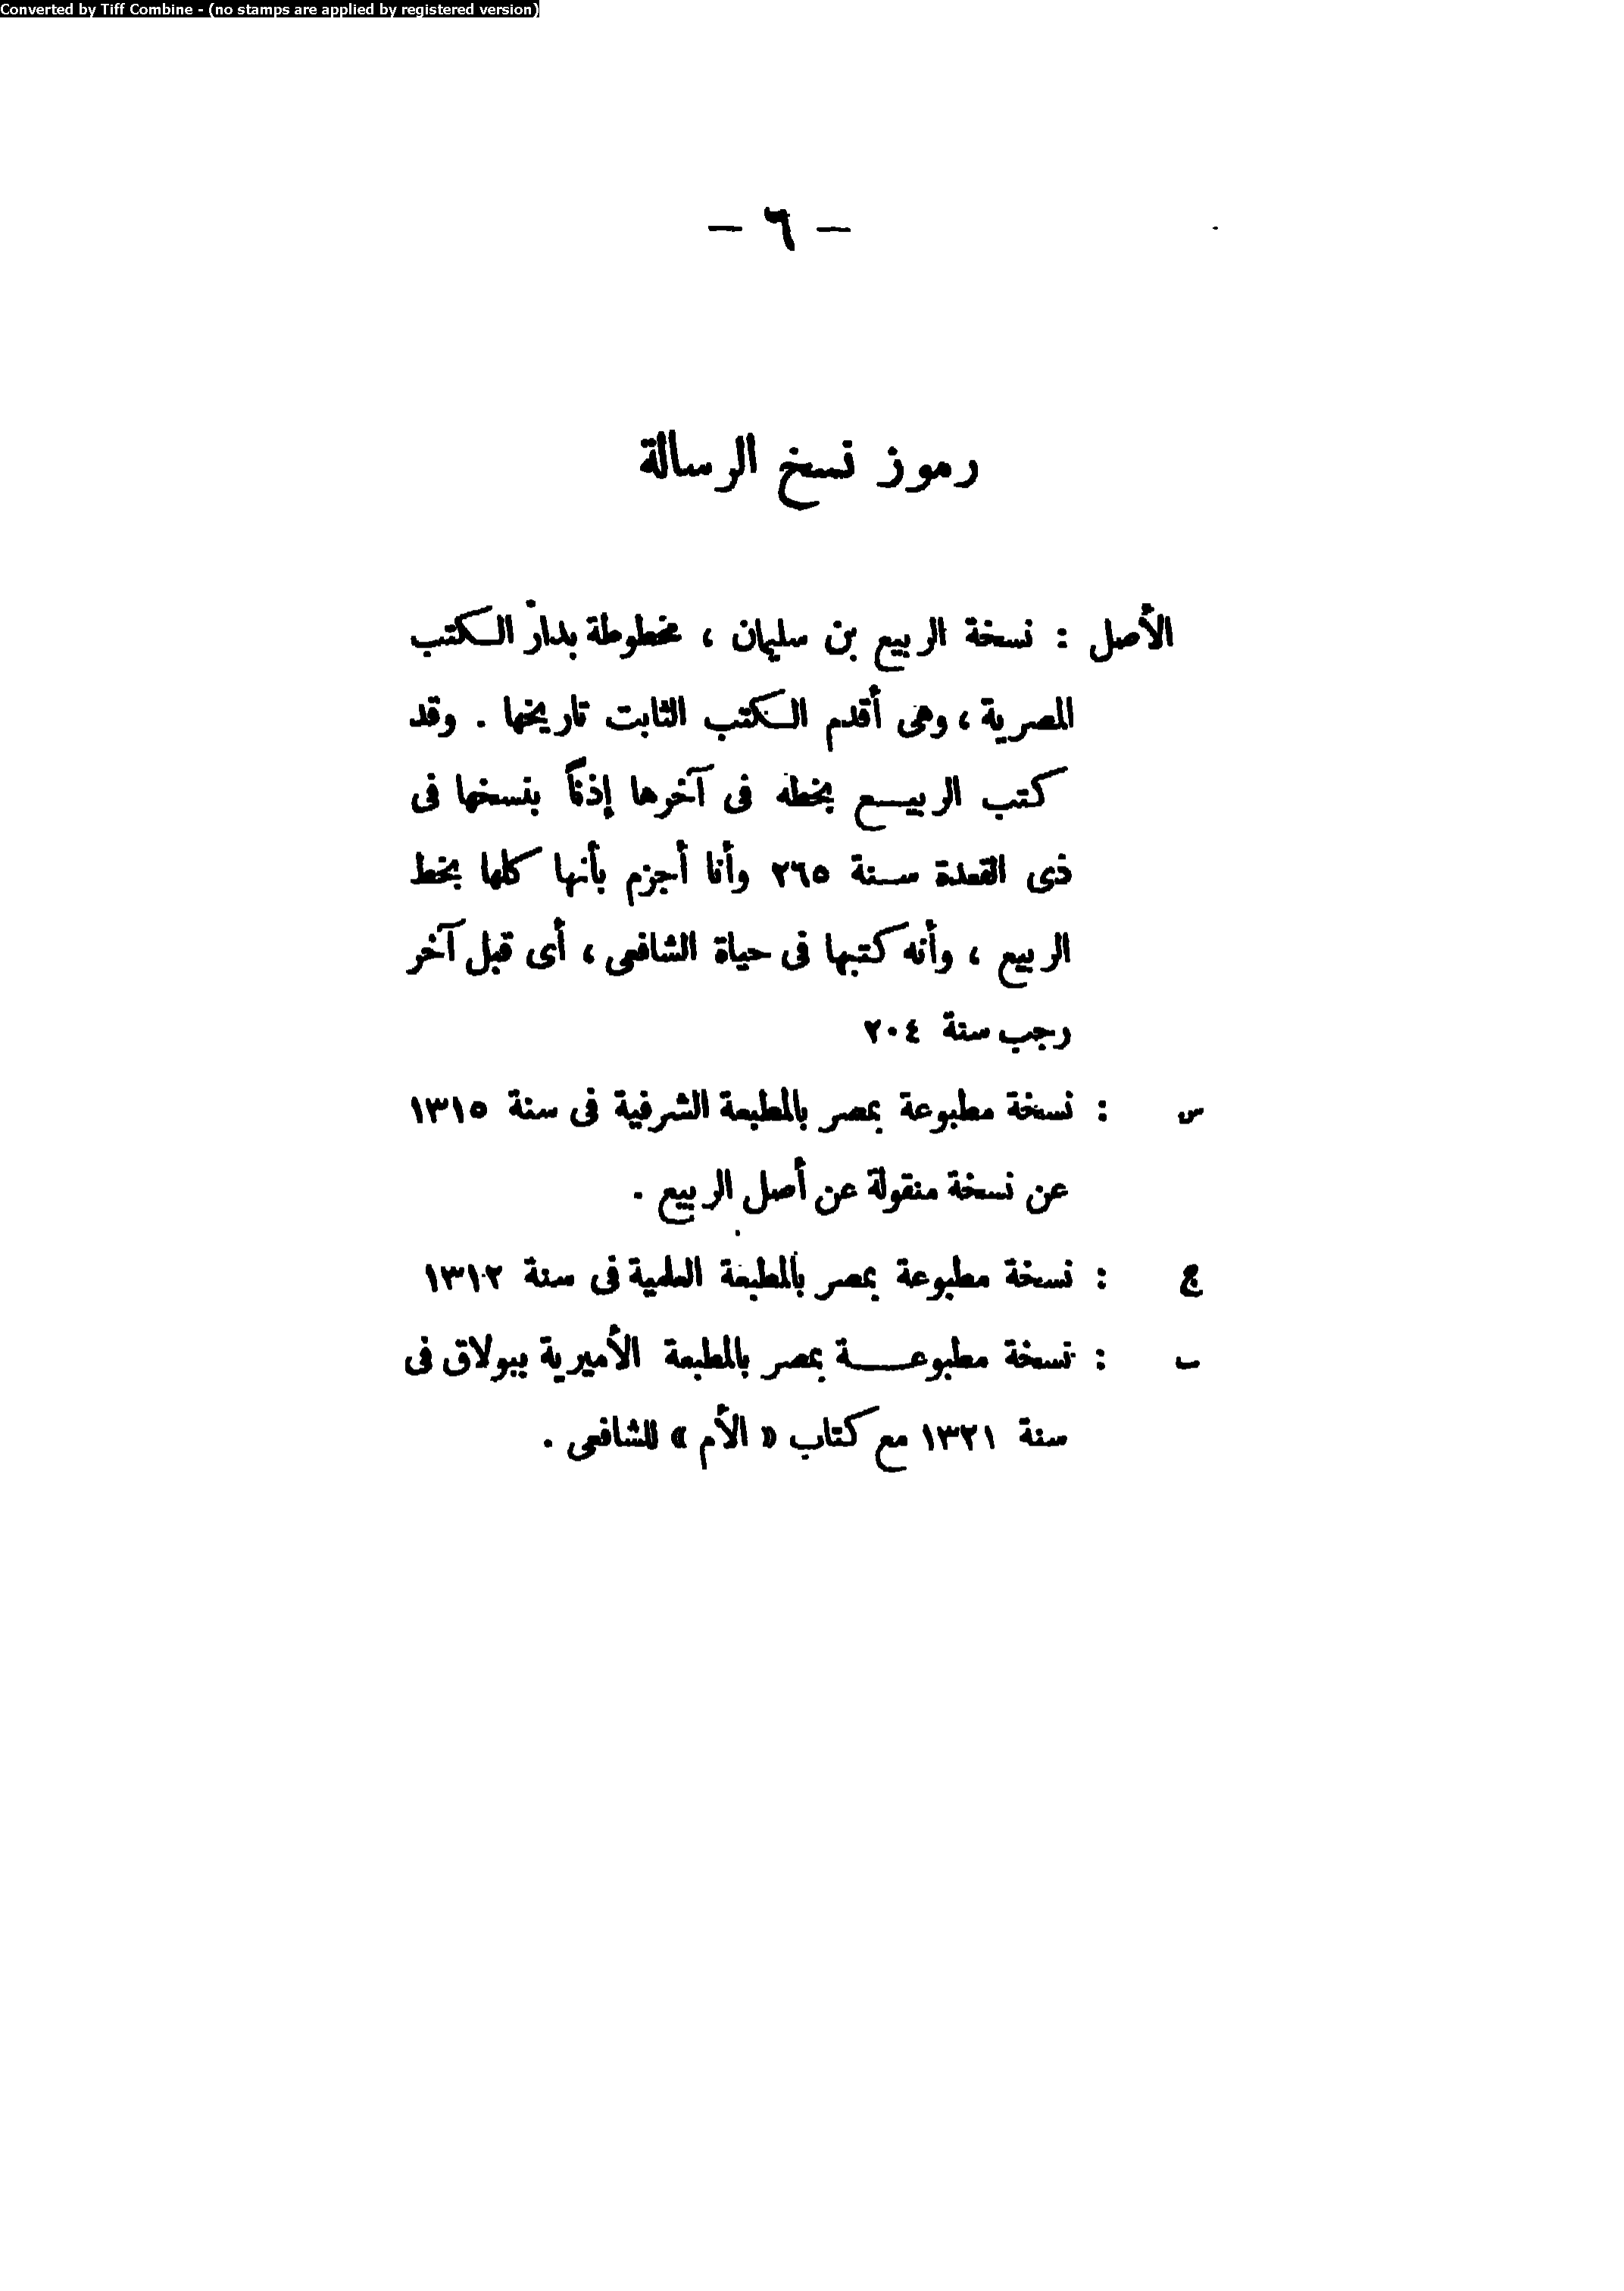 Converted by Tiff Combine - (no stamps are applied by registered version)
— ٦ —
رموز نسخ الرسالة
الأصل : نسخة الربيع بن سليمان ، مخطوطة بدار الكتب
المصرية ، وهى أقدم الكتب الثابت تاريخها . وقد
كتب الربيع بخطه فى آخرها إذنًا بنسخها فى
ذى القعدة سنة ٢٦٥ وأنا أجزم بأنها كلها بخط
الربيع ، وأنه كتبها فى حياة الشافعى ، أى قبل آخر
رجب سنة ٢٠٤
س : نسخة مطبوعة بمصر بالمطبعة الشرفية فى سنة ١٣١٥
عن نسخة منقولة عن أصل الربيع .
ج : نسخة مطبوعة بمصر بالمطبعة العلمية فى سنة ١٣١٢
ب : نسخة مطبوعة بمصر بالمطبعة الأميرية ببولاق فى
سنة ١٣٢١ مع كتاب « الأم » للشافعى .